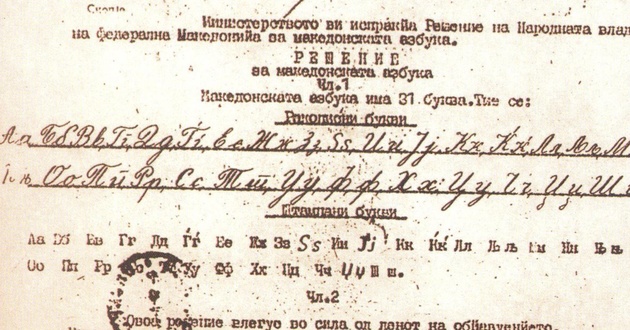 Скопје
Министерството ви испраќа Решение на Народната влад
на федерална Македонија за македонската азбука.
РЕШЕНИЕ
за македонската азбука
Чл.1
Македонската азбука има 31 буква. Тие се:
Ракописни букви
Аа Бб Вв Гг Дд Ѓѓ Ее Жж Зз Ѕѕ Ии Јј Кк Ќќ Лл Љљ М
Њњ Оо Пп Рр Сс Тт Уу Фф Хх Цц Чч Џџ Ш
Штампани букви
Аа Бб Вв Гг Дд Ѓѓ Ее Жж Зз Ѕѕ Ии Јј Кк Ќќ Лл Љљ Мм Нн Њњ
Оо Пп Рр Уу Фф Хх Цц Чч Џџ Шш.
Чл.2
Овоа решение влегуе во сила од денот на објавуењето.